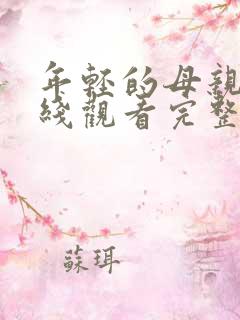 年輕的母親
綫觀看完整
蘇珥